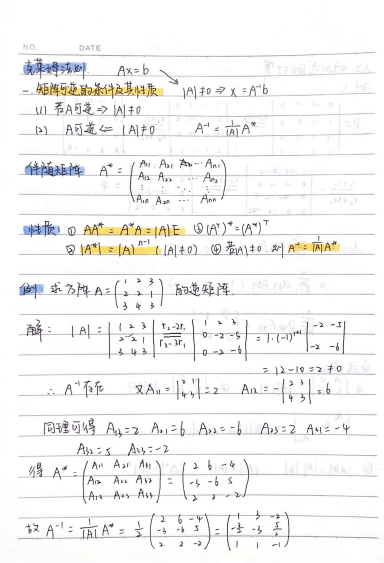 NO. DATE
克莱姆法则 Ax=b
一.矩阵可逆的条件及其性质 |A|≠0 ⇒ x=A⁻¹b
(1) 若A可逆 ⇒ |A|≠0
(2) A可逆 ⇐ |A|≠0 A⁻¹ = 1/|A| A*
伴随矩阵 A* = (A₁₁ A₂₁ A₃₁ ... Aₙ₁
A₁₂ A₂₂ ... Aₙ₂
⋮ ⋮ ⋮
A₁ₙ A₂ₙ ... Aₙₙ)
性质: ① AA*=A*A=|A|E ③ (Aᵀ)*=(A*)ᵀ
② |A*|=|A|ⁿ⁻¹ (|A|≠0) ④ 若|A|≠0, 则 A⁻¹=1/|A| A*
例 求方阵 A = (1 2 3
2 2 1
3 4 3) 的逆矩阵.
解: |A| = |1 2 3; 2 2 1; 3 4 3| r₂-2r₁ r₃-3r₁ = |1 2 3; 0 -2 -5; 0 -2 -6| = 1·(-1)¹⁺¹ |-2 -5; -2 -6|
= 12-10=2≠0
∴ A⁻¹存在 又A₁₁ = |2 1; 4 3| = 2 A₁₂ = -|2 3; 4 3| = 6
同理可得 A₁₃=2 A₂₁=6 A₂₂=-6 A₂₃=2 A₃₁=-4
A₃₂=5 A₃₃=-2
得 A* = (A₁₁ A₂₁ A₃₁; A₁₂ A₂₂ A₃₂; A₁₃ A₂₃ A₃₃) = (2 6 -4; -3 -6 5; 2 2 -2)
故 A⁻¹ = 1/|A| A* = 1/2 (2 6 -4; -3 -6 5; 2 2 -2) = (1 3 -2; -3/2 -3 5/2; 1 1 -1)